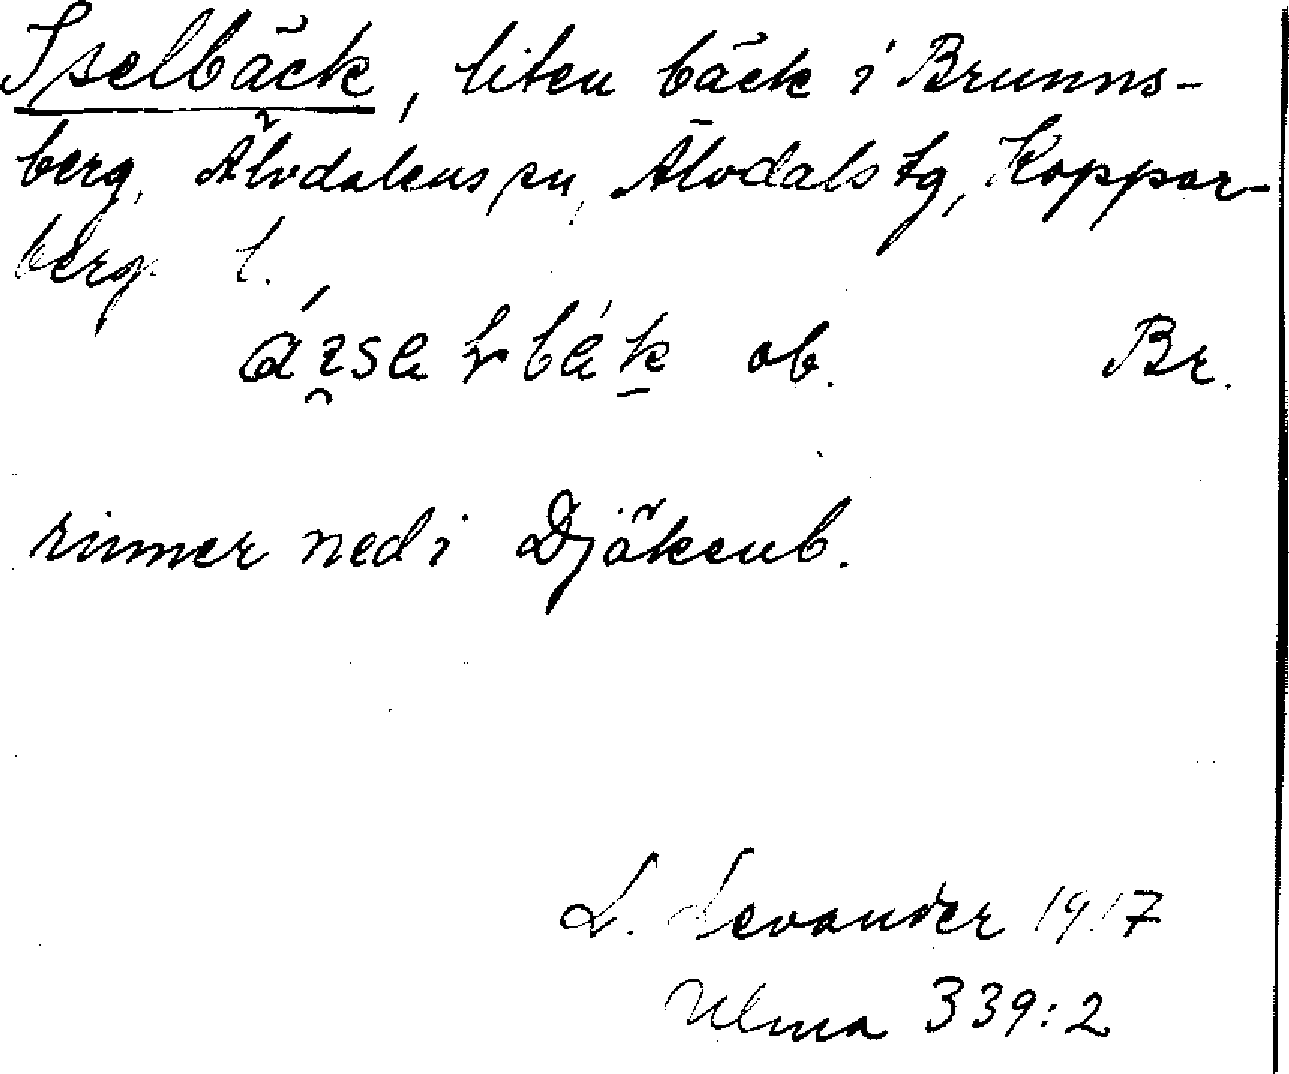 Iselbäck, liten bäck i Brunns-
berg, Älvdalens sn, Älvdals tg, Koppar-
berg l.
ob. Br.
rinner ned i Djäkenb.
L. Levander 1917
Ulma 339:2